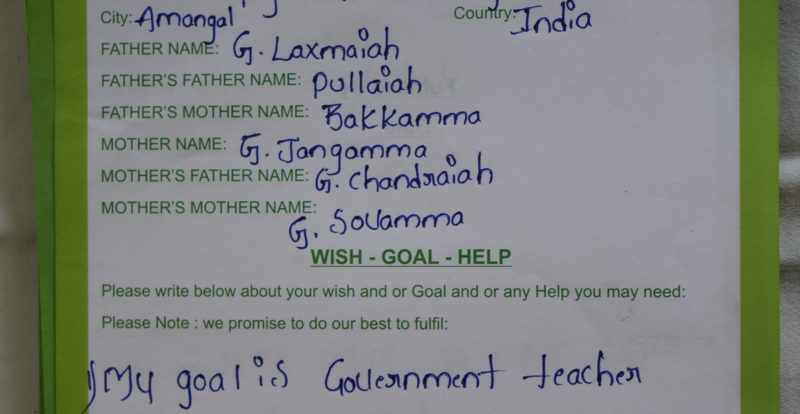 City: Amangal Country: India
FATHER NAME: G. Laxmaiah
FATHER'S FATHER NAME: Pullaiah
FATHER'S MOTHER NAME: Bakkamma
MOTHER NAME: G. Jangamma
MOTHER'S FATHER NAME: G. Chandraiah
MOTHER'S MOTHER NAME:
G. Sovamma
WISH - GOAL - HELP
Please write below about your wish and or Goal and or any Help you may need:
Please Note : we promise to do our best to fulfil:
1) My goal is Government teacher